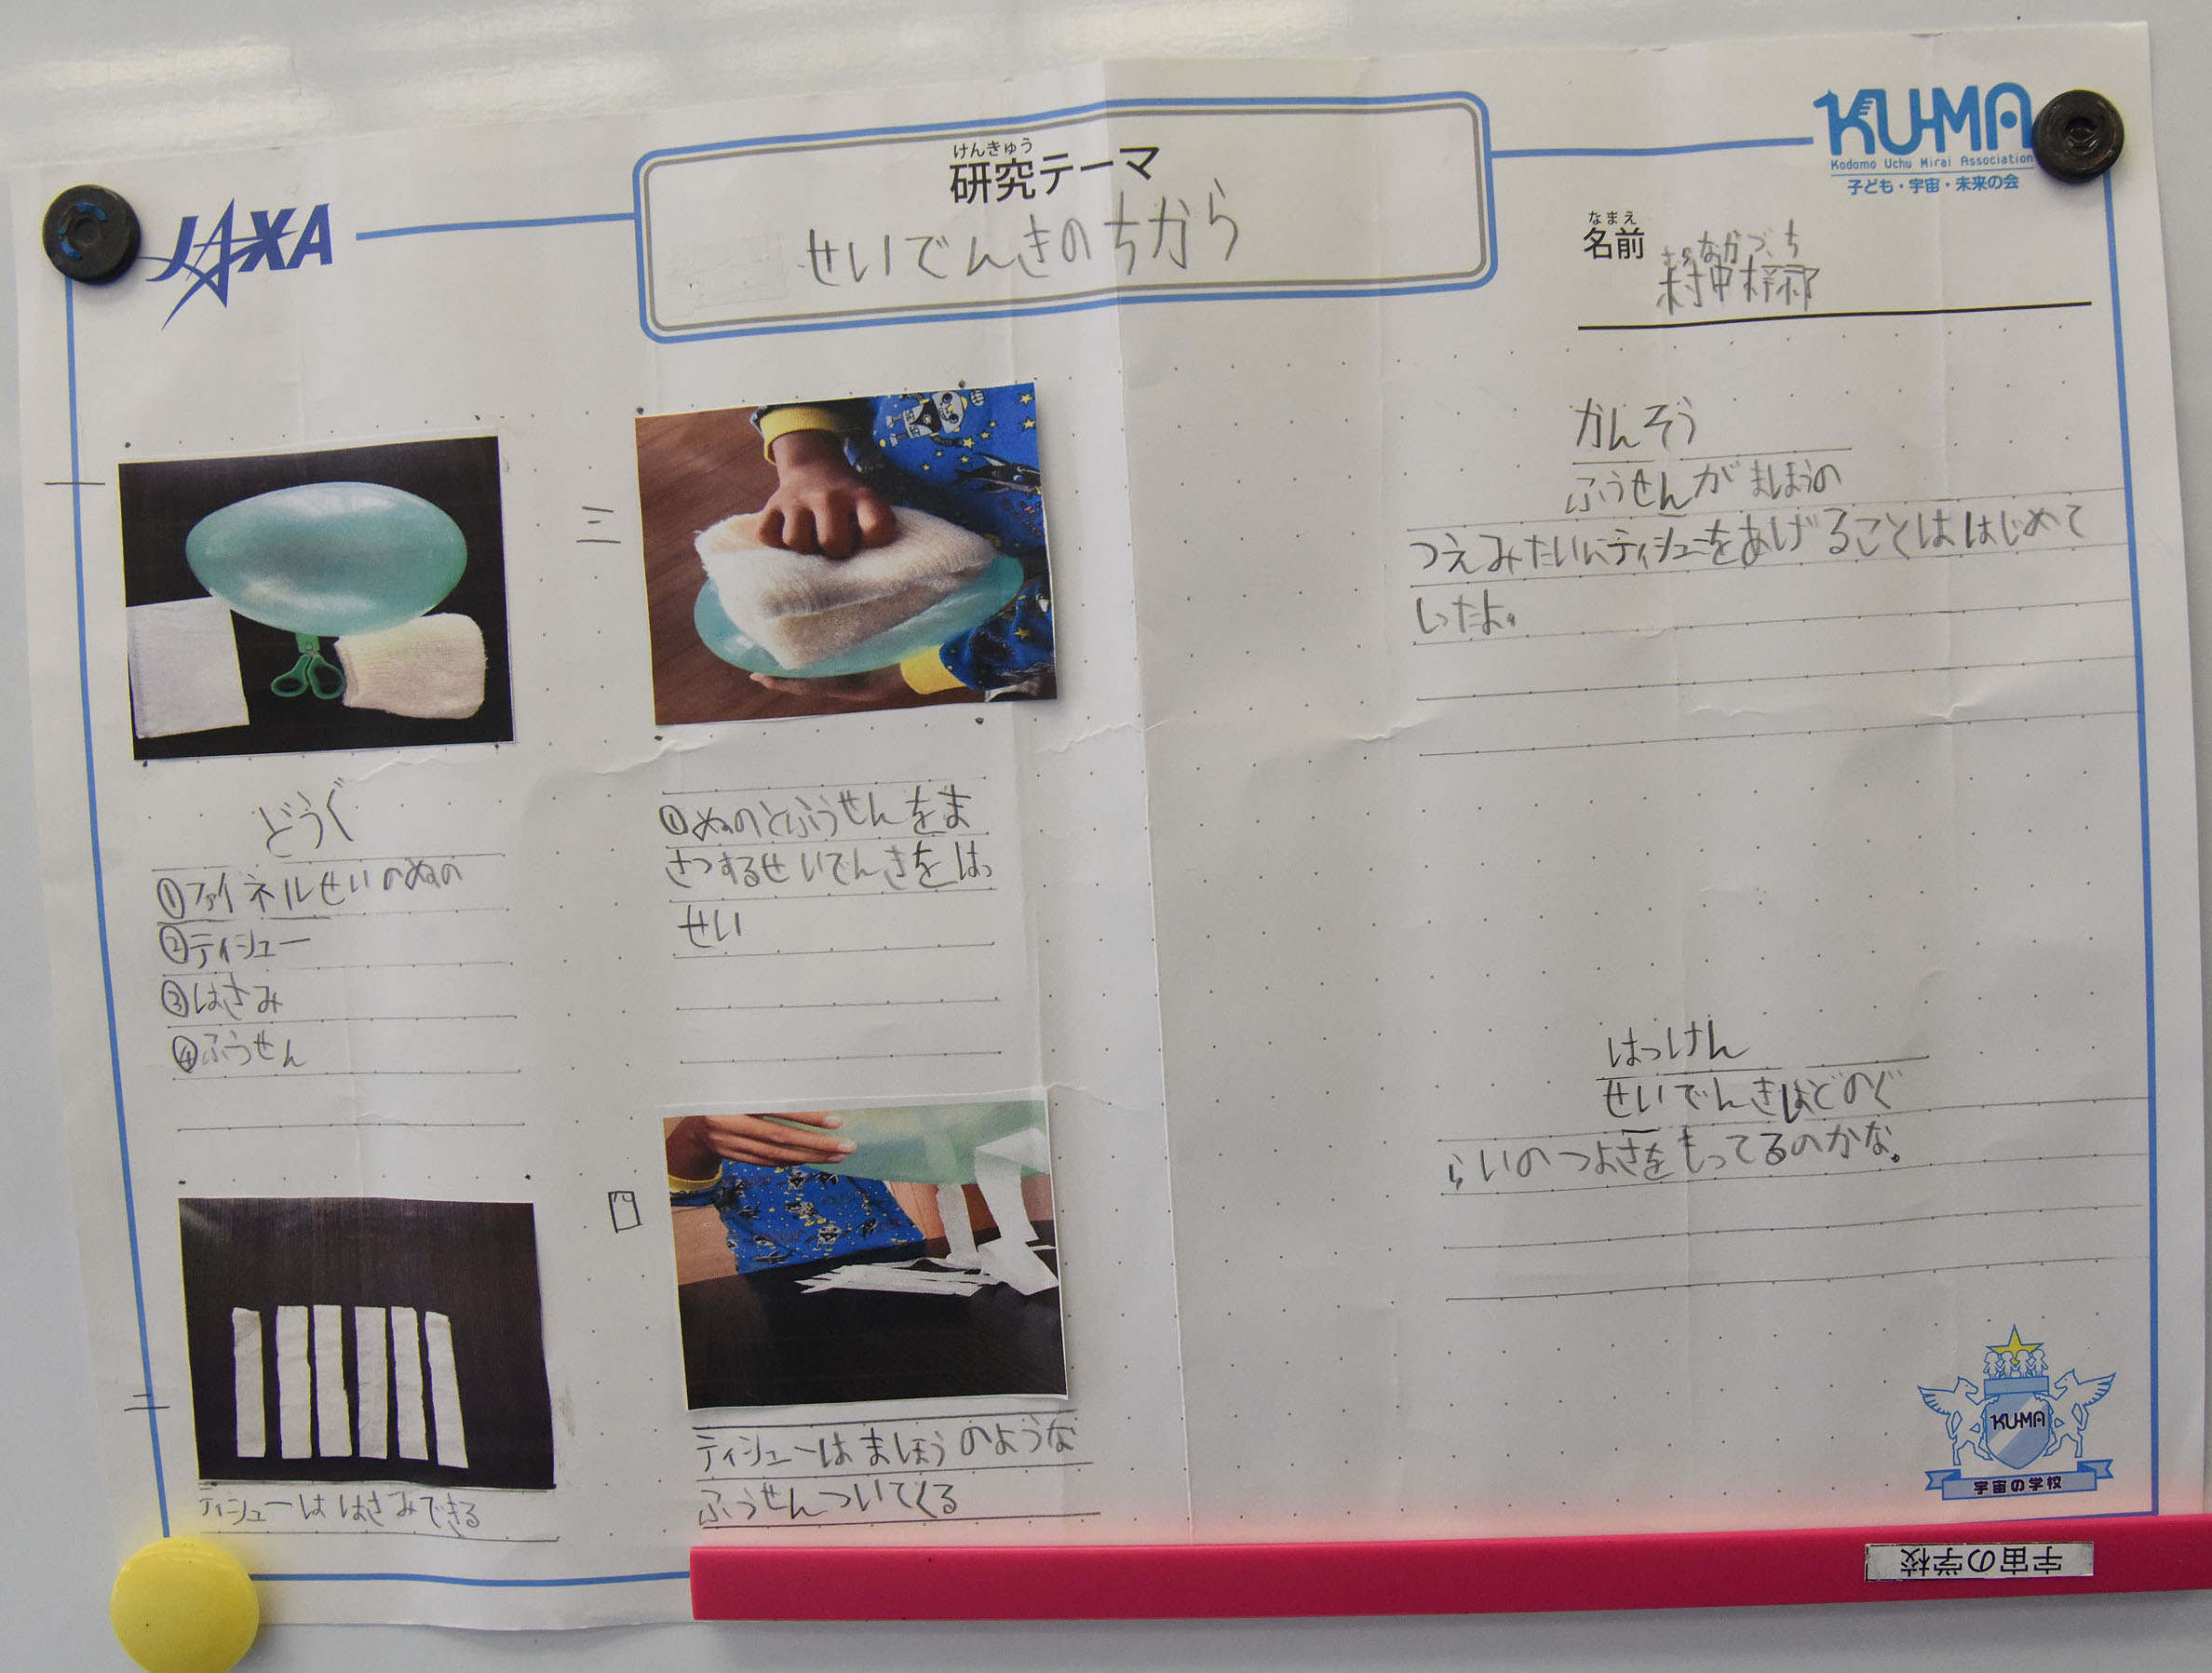 JAXA
けんきゅう
研究テーマ
せいでんきのちから
KU-MA
Kodomo Uchu Mirai Association
子ども・宇宙・未来の会
なまえ
名前
むらなかづち
村中
一
どうぐ
①ファイネルせいのぬの
②ティシュー
③はさみ
④ふうせん
二
ティシューははさみできる
三
①ぬのとふうせんをま
さつするせいでんきをはっ
せい
四
ティシューはまほうのような
ふうせんついてくる
かんそう
ふうせんがまほうの
つえみたいにティシューをあげることははじめて
しったよ。
はっけん
せいでんきはどのぐ
らいのつよさをもってるのかな。
KU-MA
宇宙の学校
宇宙の学校